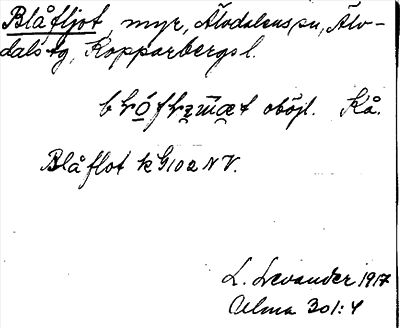 Blåfljot myr, Älvdalens sn, Älv-
dals tg, Kopparbergs l.
oböjl. Kå.
Blåflot k G102 NV.
L. Levander 1917
Ulma 301:4